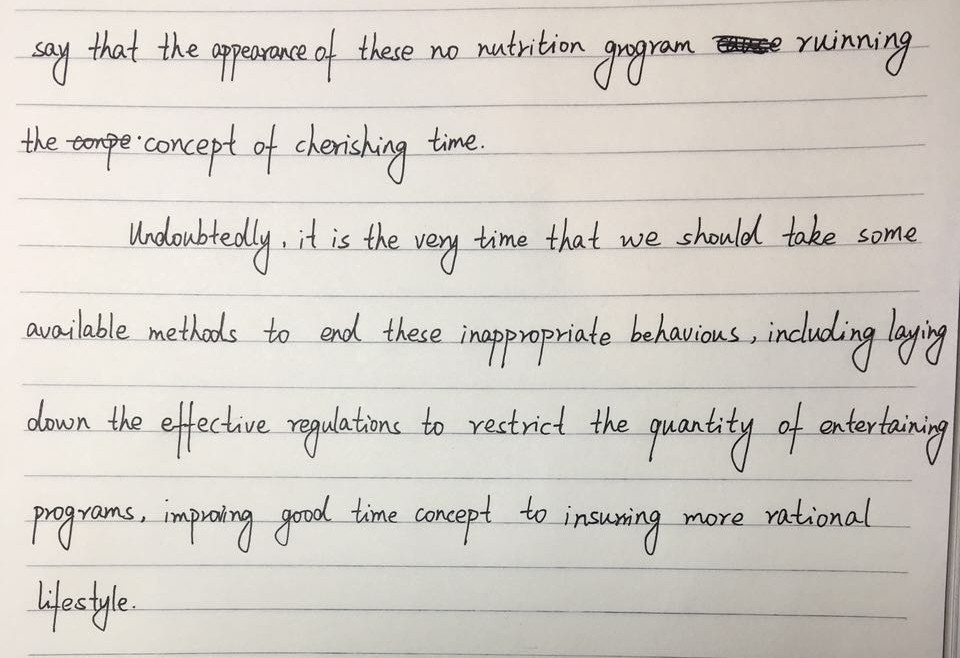 say that the appearance of these no nutrition grogram ruinning
the conpe concept of cherishing time.
Undoubtedly, it is the very time that we should take some
available methods to end these inappropriate behavious, including laying
down the effective regulations to restrict the quantity of entertaining
programs, improving good time concept to insuring more rational
lifestyle.